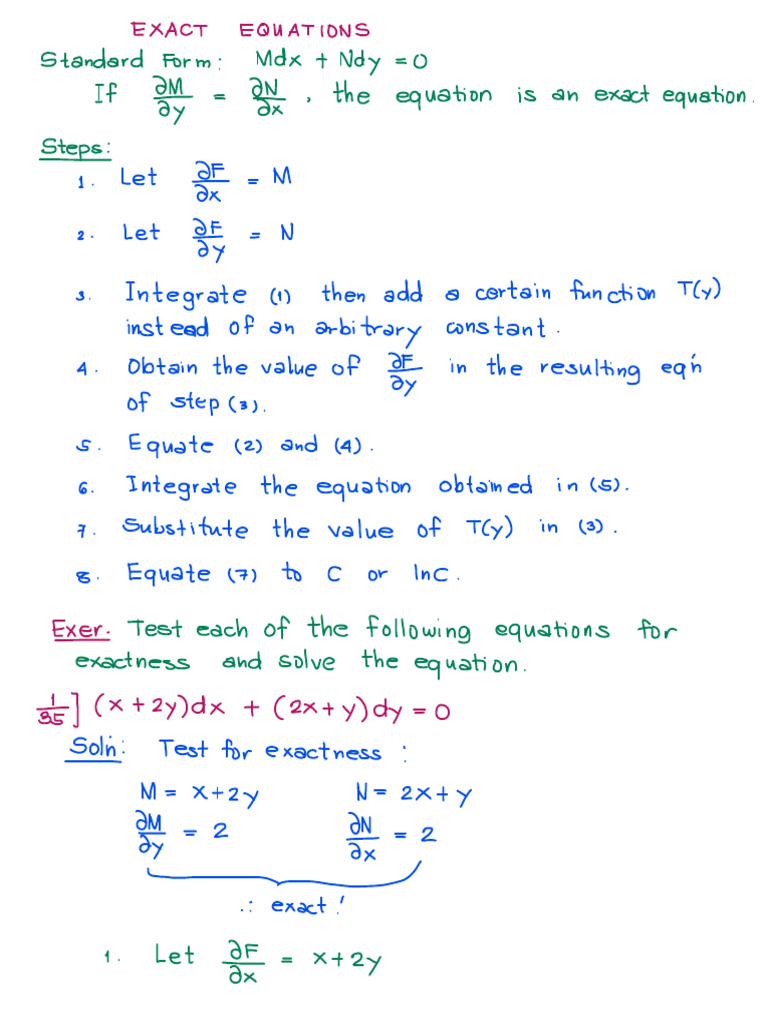 EXACT EQUATIONS
Standard Form: Mdx + Ndy = 0
If ∂M/∂y = ∂N/∂x, the equation is an exact equation.
Steps:
1. Let ∂F/∂x = M
2. Let ∂F/∂y = N
3. Integrate (1) then add a certain function T(y)
instead of an arbitrary constant.
4. Obtain the value of ∂F/∂y in the resulting eq'n
of step (3).
5. Equate (2) and (4).
6. Integrate the equation obtained in (5).
7. Substitute the value of T(y) in (3).
8. Equate (7) to C or lnC.
Exer. Test each of the following equations for
exactness and solve the equation.
1/35] (x + 2y)dx + (2x + y)dy = 0
Sol'n: Test for exactness:
M = x+2y N = 2x+y
∂M/∂y = 2 ∂N/∂x = 2
∴ exact!
1. Let ∂F/∂x = x+2y